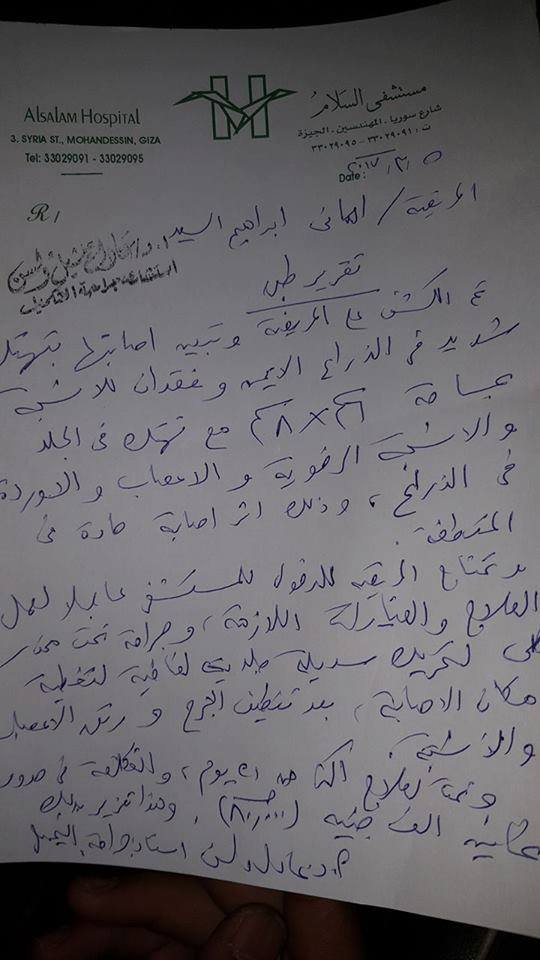 ALSALAM HOSPITAL
3. SYRIA ST., MOHANDESSIN, GIZA
Tel: 33029091 - 33029095
مستشفى السلام
شارع سوريا . المهندسين . الجيزة
ت : ٣٣٠٢٩٠٩١ - ٣٣٠٢٩٠٩٥
Date : ٢٠١٧/٣/٥
R/
المريضة / امانى ابراهيم السيد
تقرير طبى
تم الكشف على المريضة وتبين اصابتها بتهتك
شديد فى الذراع الايمن وفقدان للانسجة
بمساحة ٨x١٢ سم مع تهتك فى الجلد
والانسجة الرخوية والاعصاب والاوردة
فى الذراع ، وذلك اثر اصابة حادة فى
المنطقة .
وتحتاج المريضة للدخول للمستشفى عاجلا لعمل
العلاج والغيارات اللازمة ، وجراحة تحت
لتحريك سديلة جلدية لفافية لتغطية
مكان الاصابة ، بعد تنظيف الجرح ورتق الاعصاب
والانسجة .
وتحتاج لعلاج اكثر من ٢١ يوم ، والتكلفة فى حدود
الف جنيه ، وهذا تقرير بذلك
استاذ جراحة التجميل